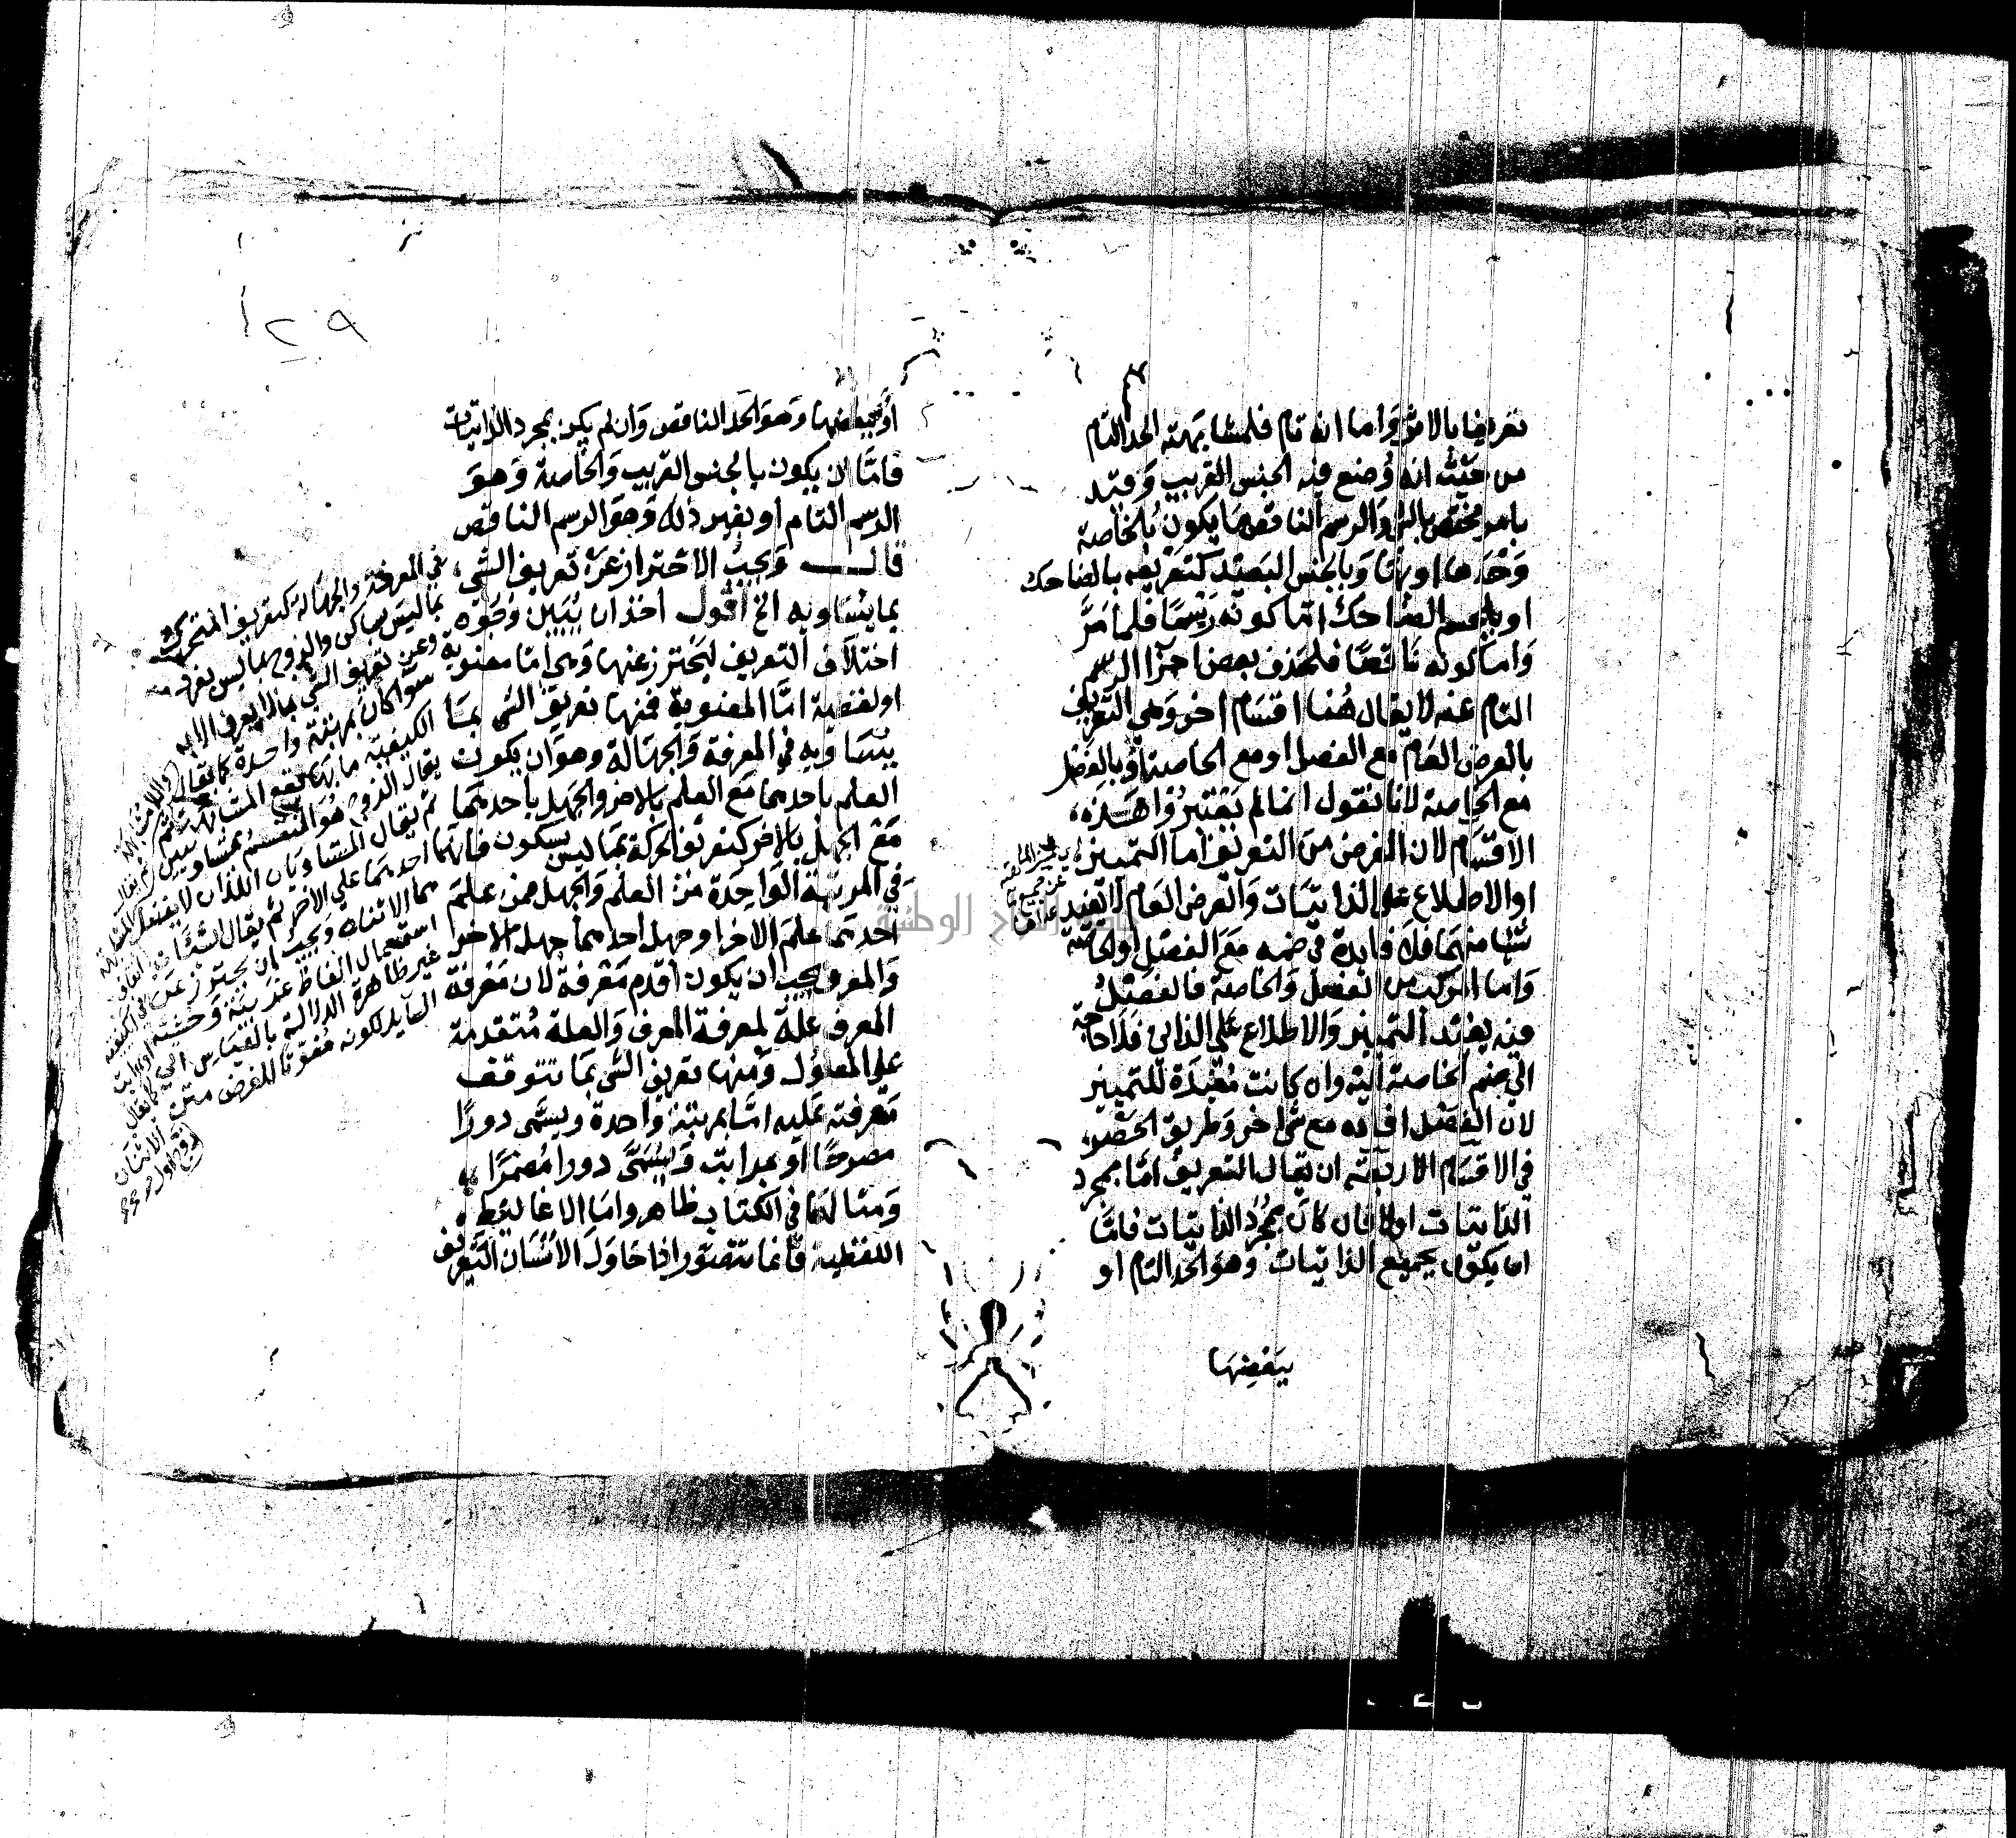 تعريفا بالاثر وَاما انه تام فلمشابهته الحد التام
من حيث انه وُضع فيه الجنس القريب وَقيد
بامر يختص بالشي وَالرسم الناقص ما يكون بالخاصة
وَحْدَها او بها وَبالجنس البَعيد كتعريفه بالضاحك
او بالجسم الضاحك امّا كونه رَسمًا فلما مَرَّ
وَاما كونه ناقصًا فلحذف بعض اجزا الرسم
التام عنه لا يقال هُنا اقسَام اخر وَهي التعريف
بالعرض العَام مع الفصل او مع الخاصة اوْ بالفصل
مع الخاصة لانا نقول انما لم يَعْتبرُوْا هَذه
الاقسَام لان الغرض من التعريف اما التمييز
اوالاطلاع على الذاتيَات وَالعرض العَام لا يفيد
شيًا منهمَا فلا فايدة في ضمه مَعَ الفصل او الخاصة
وَاما المركب من الفصل وَالخاصة فالفصل
فيه يفيد التمييز وَالاطلاع على الذاتي فلا حاجة
الي ضم الخاصة اليه وان كانت مُفيدَة للتمييز
لان الفصل افاده مع شي اخر وَطريق الحصر
في الاقسَام الاربعه ان يقال التعريف امّا بمجرد
الذاتيات اولا فان كان بمجرد الذاتيات فامّا
ان يكون بجميع الذاتيات وَهوَ الحد التام او
ببَعضِهَا
١٢٩
أو ببعضها وَهوَ الحَد الناقص وَان لم يكن بمجرد الذاتيات
فامّا ان يكون بالجنس القريب وَالخاصة وَهوَ
الرسم التام او بغير ذلك وَهوَ الرسم الناقص
قال وَيجبُ الاحتراز عَنْ تعريف الشي
بما يسَاويه الخ اقول اخذ ان يُبَين وُجُوه
اختلاف التعريف ليحترز عنها وَهي امّا معنوية
او لفظية امّا المعنوية فمنها تعريف الشي بمَا
يُسَاويه في المعرفة وَالجهَالة وهوَ ان يكون
العلم باحدهما مَعَ العلم بالاخر والجهل باحدهما
مَعَ الجهل بالاخر كتعريف الحركة بمَا ليس بسكون فانهما
في المرتبَة الوَاحِدَة منَ العلم وَالجهل فمن علمَ
احدهمَا علمَ الاخر او جهل احدهمَا جهل الاخر
وَالمعرف يجب ان يكون اقدم مَعرفة لان مَعْرفة
المعرف علة لمعرفة المعرف وَالعلة مُتقدمة
علي المعلول وَمنها تعريف الشي بمَا تتوقف
مَعرفته عَليه امّا بمرتبَة وَاحدة ويسَمى دورًا
مصرحًا او بمراتب وَيسُمَّى دورا مُضمرًا
وَمثالهمَا في الكتاب ظاهر وامَا الاغاليط
اللفظية فانما تتصَور اذا حَاوَلَ الانسَان التعريف
في المعرفة والجهالة كتعريف المتحرك
بما ليس بساكن والزوج بما ليس بفرد
وعن تعريف الشي بما لا يعرف الا به
سَوَا كان بمرتبة واحدة كما يقال
الكيفية ما بها يقع المشابهة ثم
يقال الزوج هو المنقسم بمتساويين ثم يقال
ثم يقال المتساويان اللذان لا يفضل
احدهمَا علي الاخر ثم يقال
هما الاثنان وَيجب ان يحترز عن
استعمال الفاظ غريبَة وَحشية
غير ظاهرة الدلالة بالقياس الي
السايد لكونه مُفوّتًا للغرض متن